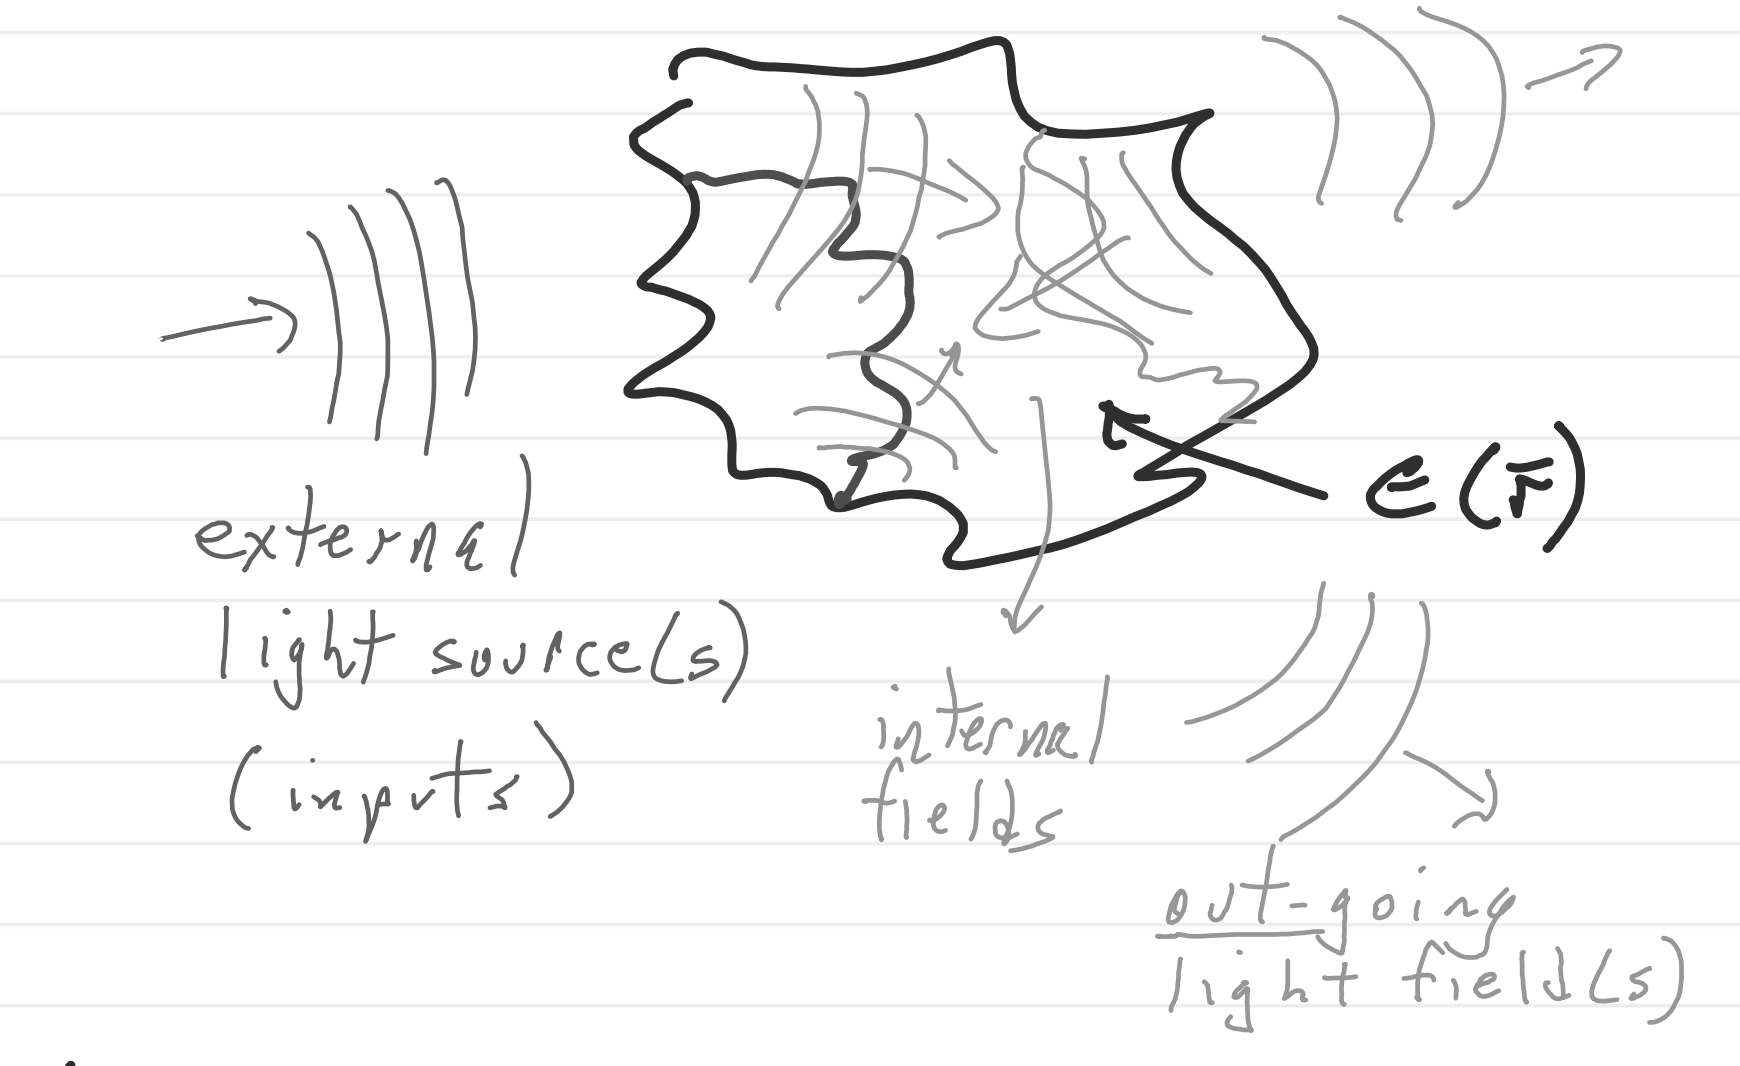 ϵ(r̄)
external
light source(s)
(inputs)
internal
fields
out-going
light field(s)